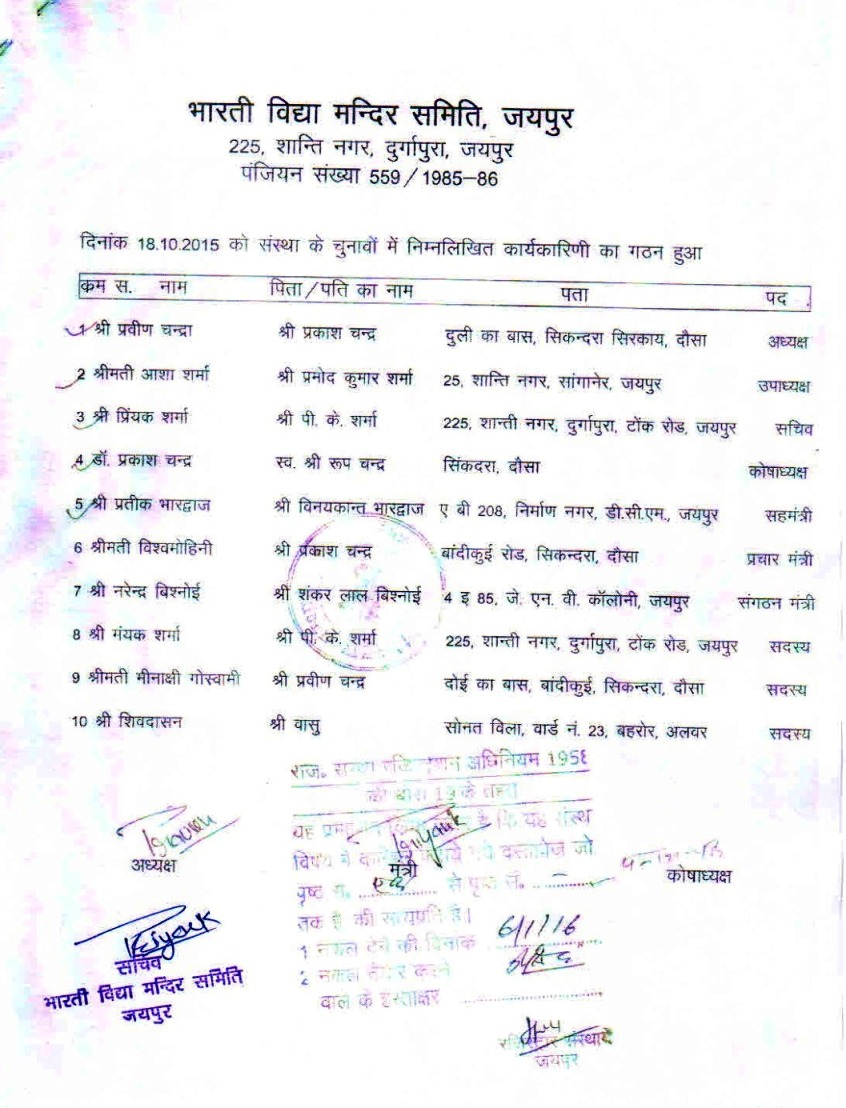 भारती विद्या मन्दिर समिति, जयपुर
225, शान्ति नगर, दुर्गापुरा, जयपुर
पंजियन संख्या 559/1985–86
दिनांक 18.10.2015 को संस्था के चुनावों में निम्नलिखित कार्यकारिणी का गठन हुआ
कम स. नाम पिता/पति का नाम पता पद
1 श्री प्रवीण चन्द्रा श्री प्रकाश चन्द्र दुली का बास, सिकन्दरा सिरकाय, दौसा अध्यक्ष
2 श्रीमती आशा शर्मा श्री प्रमोद कुमार शर्मा 25, शान्ति नगर, सांगानेर, जयपुर उपाध्यक्ष
3 श्री प्रिंयक शर्मा श्री पी. के. शर्मा 225, शान्ती नगर, दुर्गापुरा, टोंक रोड, जयपुर सचिव
4 डॉ. प्रकाश चन्द्र स्व. श्री रूप चन्द्र सिंकदरा, दौसा कोषाध्यक्ष
5 श्री प्रतीक भारद्वाज श्री विनयकान्त भारद्वाज ए बी 208, निर्माण नगर, डी.सी.एम., जयपुर सहमंत्री
6 श्रीमती विश्वमोहिनी श्री प्रकाश चन्द्र बांदीकुई रोड, सिकन्दरा, दौसा प्रचार मंत्री
7 श्री नरेन्द्र बिश्नोई श्री शंकर लाल बिश्नोई 4 इ 85, जे. एन. वी. कॉलोनी, जयपुर संगठन मंत्री
8 श्री मंयक शर्मा श्री पी. के. शर्मा 225, शान्ती नगर, दुर्गापुरा, टोंक रोड, जयपुर सदस्य
9 श्रीमती मीनाक्षी गोस्वामी श्री प्रवीण चन्द्र दोई का बास, बांदीकुई, सिकन्दरा, दौसा सदस्य
10 श्री शिवदासन श्री वासु सोनत विला, वार्ड नं. 23, बहरोर, अलवर सदस्य
राज. अधिनियम 1958
की धारा 19 के तहत
यह है कि यह संस्था
दस्तावेज जो
पृष्ठ सं. से पृष्ठ सं.
तक है की सत्यप्रति है।
1 नकल देने की दिनांक 6/1/16
2 नकल तैयार करने
वाले के हस्ताक्षर
अध्यक्ष
मंत्री
कोषाध्यक्ष
सचिव
भारती विद्या मन्दिर समिति
जयपुर
रजिस्ट्रार संस्थाएं
जयपुर